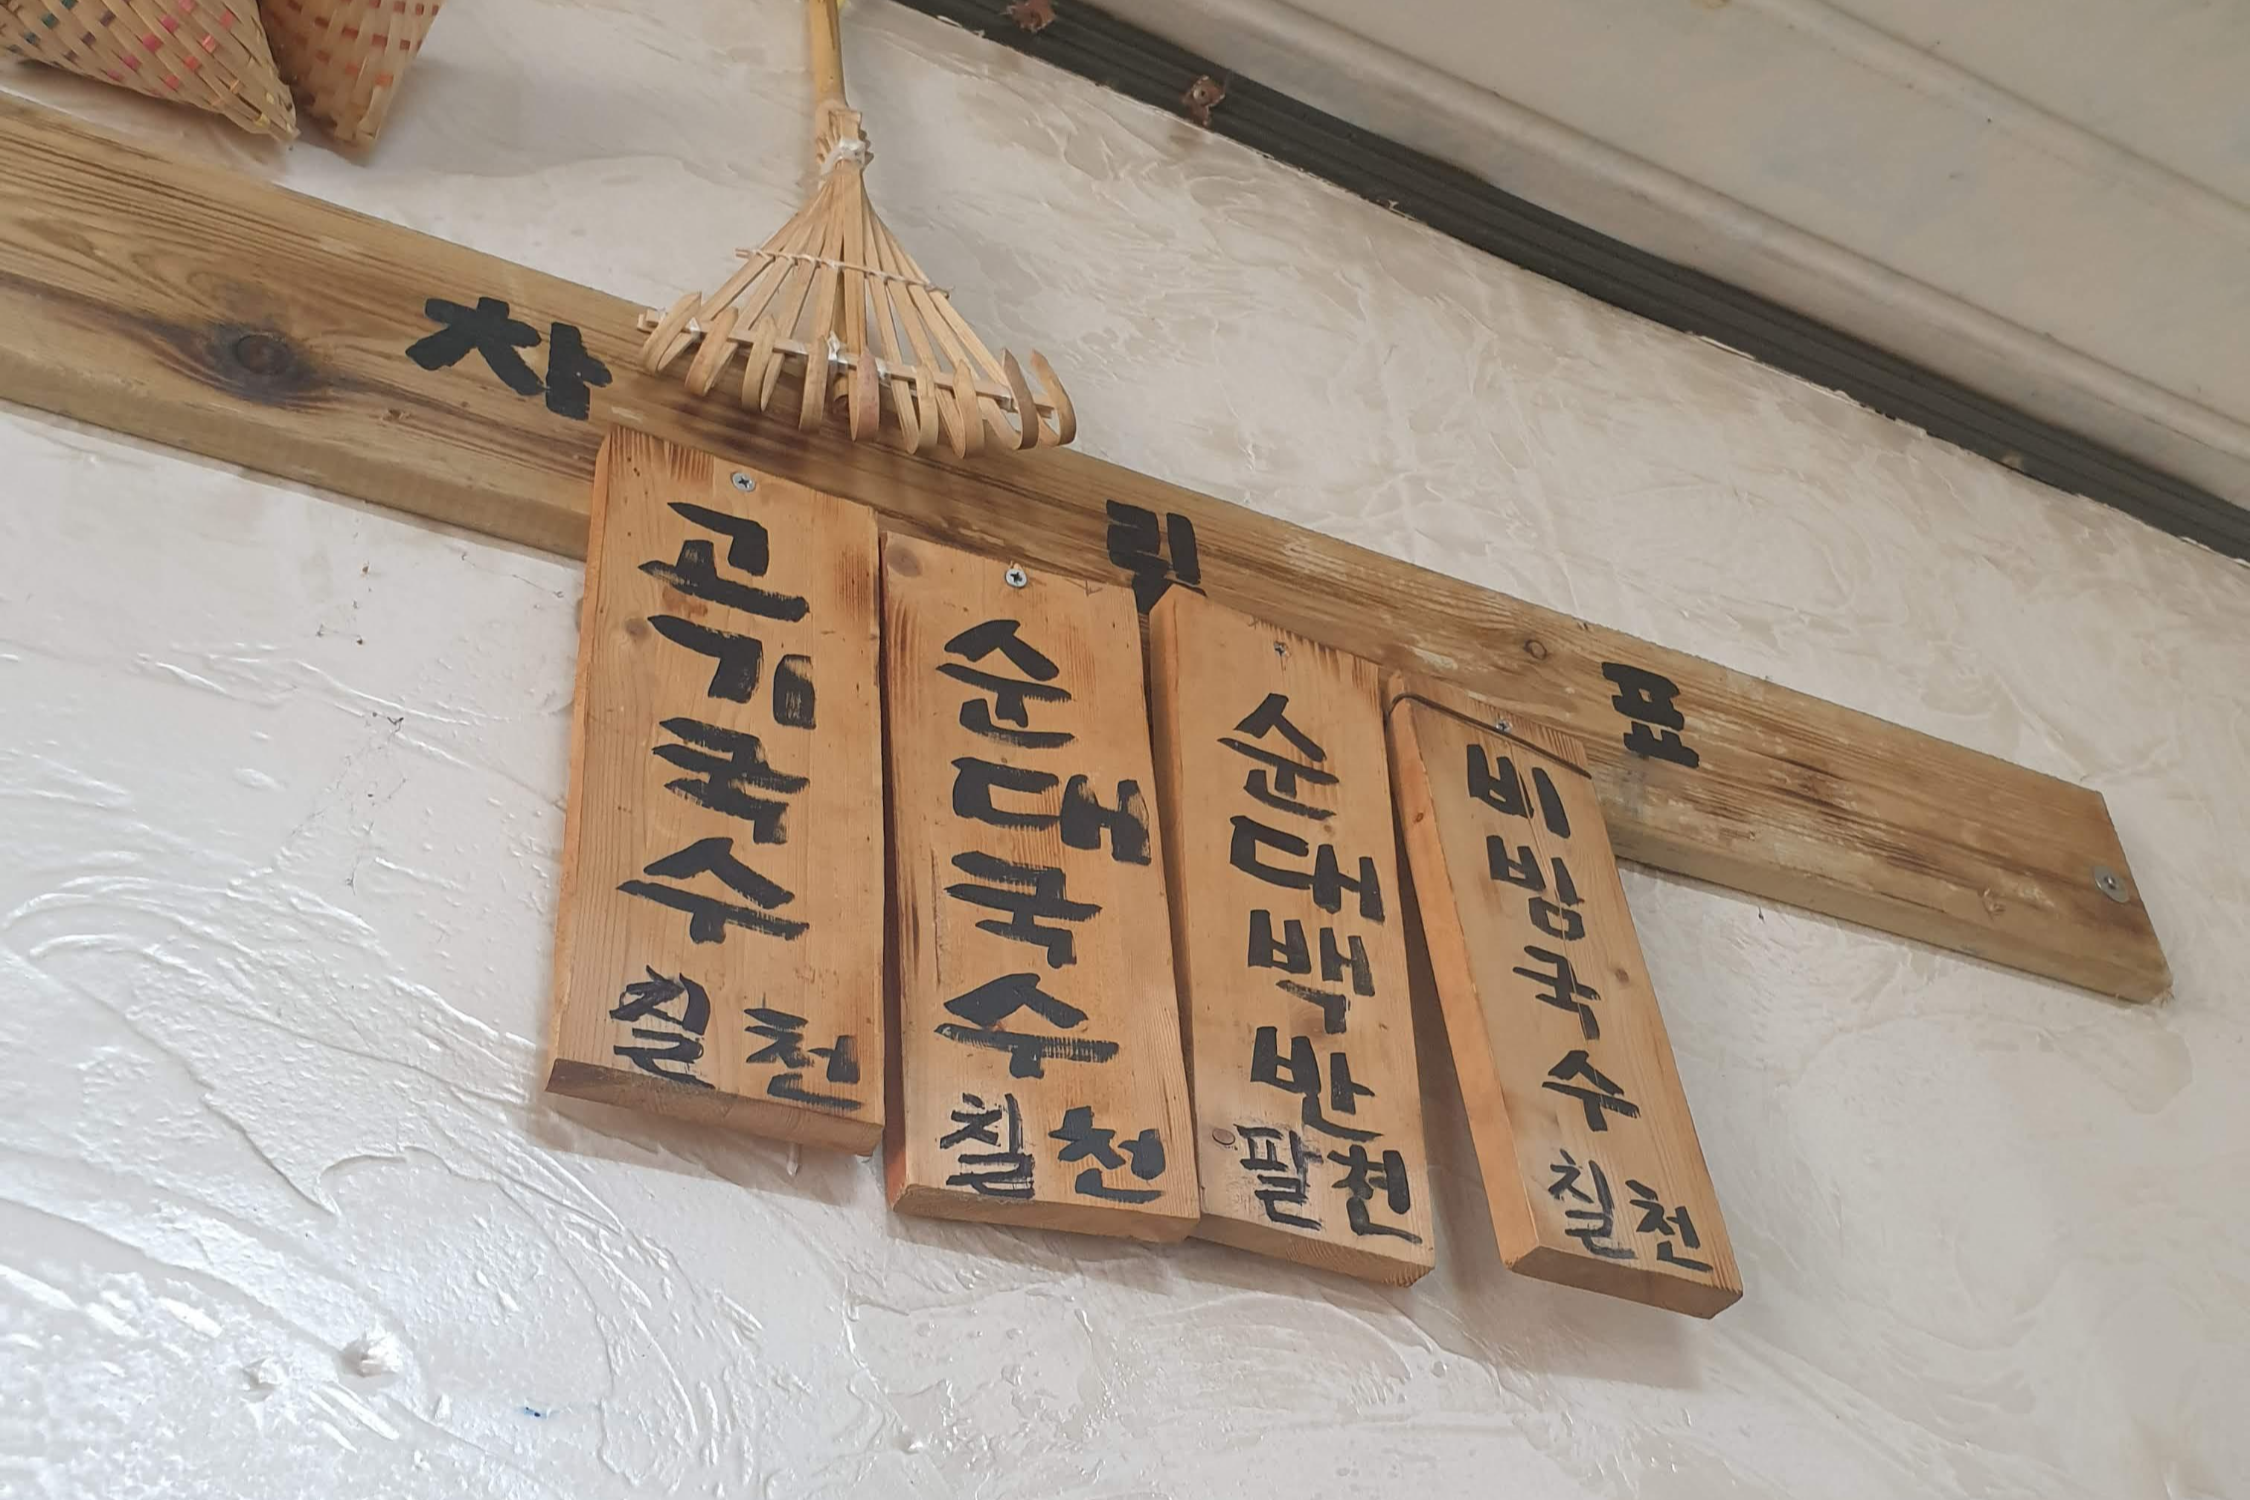 차릿표
고기국수
칠천
순대국수
칠천
순대백반
팔천
비빔국수
칠천